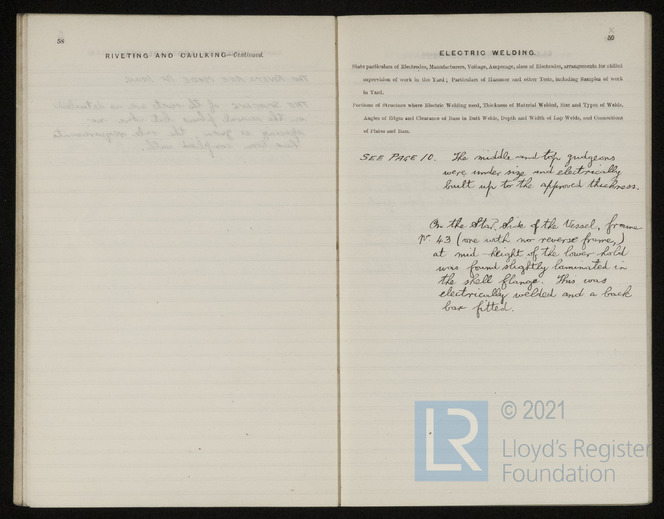 58
RIVETING AND CAULKING—Continued.
59
ELECTRIC WELDING.
State particulars of Electrodes, Manufacturers, Voltage, Amperage, sizes of Electrodes, arrangements for skilled
supervision of work in the Yard; Particulars of Hammer and other Tests, including Samples of work
in Yard.
Portions of Structure where Electric Welding used, Thickness of Material Welded, Size and Types of Welds,
Angles of Edges and Clearance of Bars in Butt Welds, Depth and Width of Lap Welds, and Connections
of Plates and Bars.
SEE PAGE 10. The middle and top gudgeons
were under size and electrically
built up to the approved thickness.
On the Star'd. Side of the Vessel, frame
No 43 (one with no reverse frame,)
at mid-height of the lower hold
was found slightly laminated in
the shell flange. This was
electrically welded and a back
bar fitted.
LR
© 2021
Lloyd's Register
Foundation